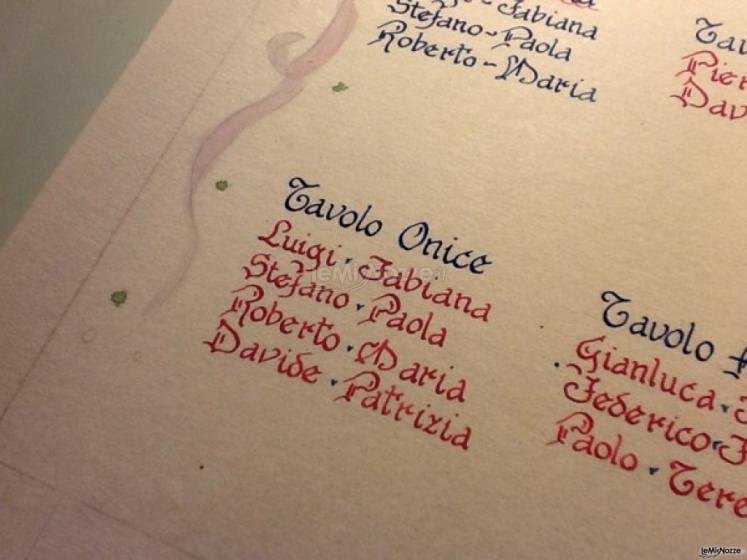 Fabiana
Stefano-Paola
Roberto-Maria
Tavolo Onice
Luigi · Fabiana
Stefano · Paola
Roberto · Maria
Davide · Patrizia
Tavolo
Gianluca ·
Federico ·
Paolo ·
leMieNozze.it
leMieNozze